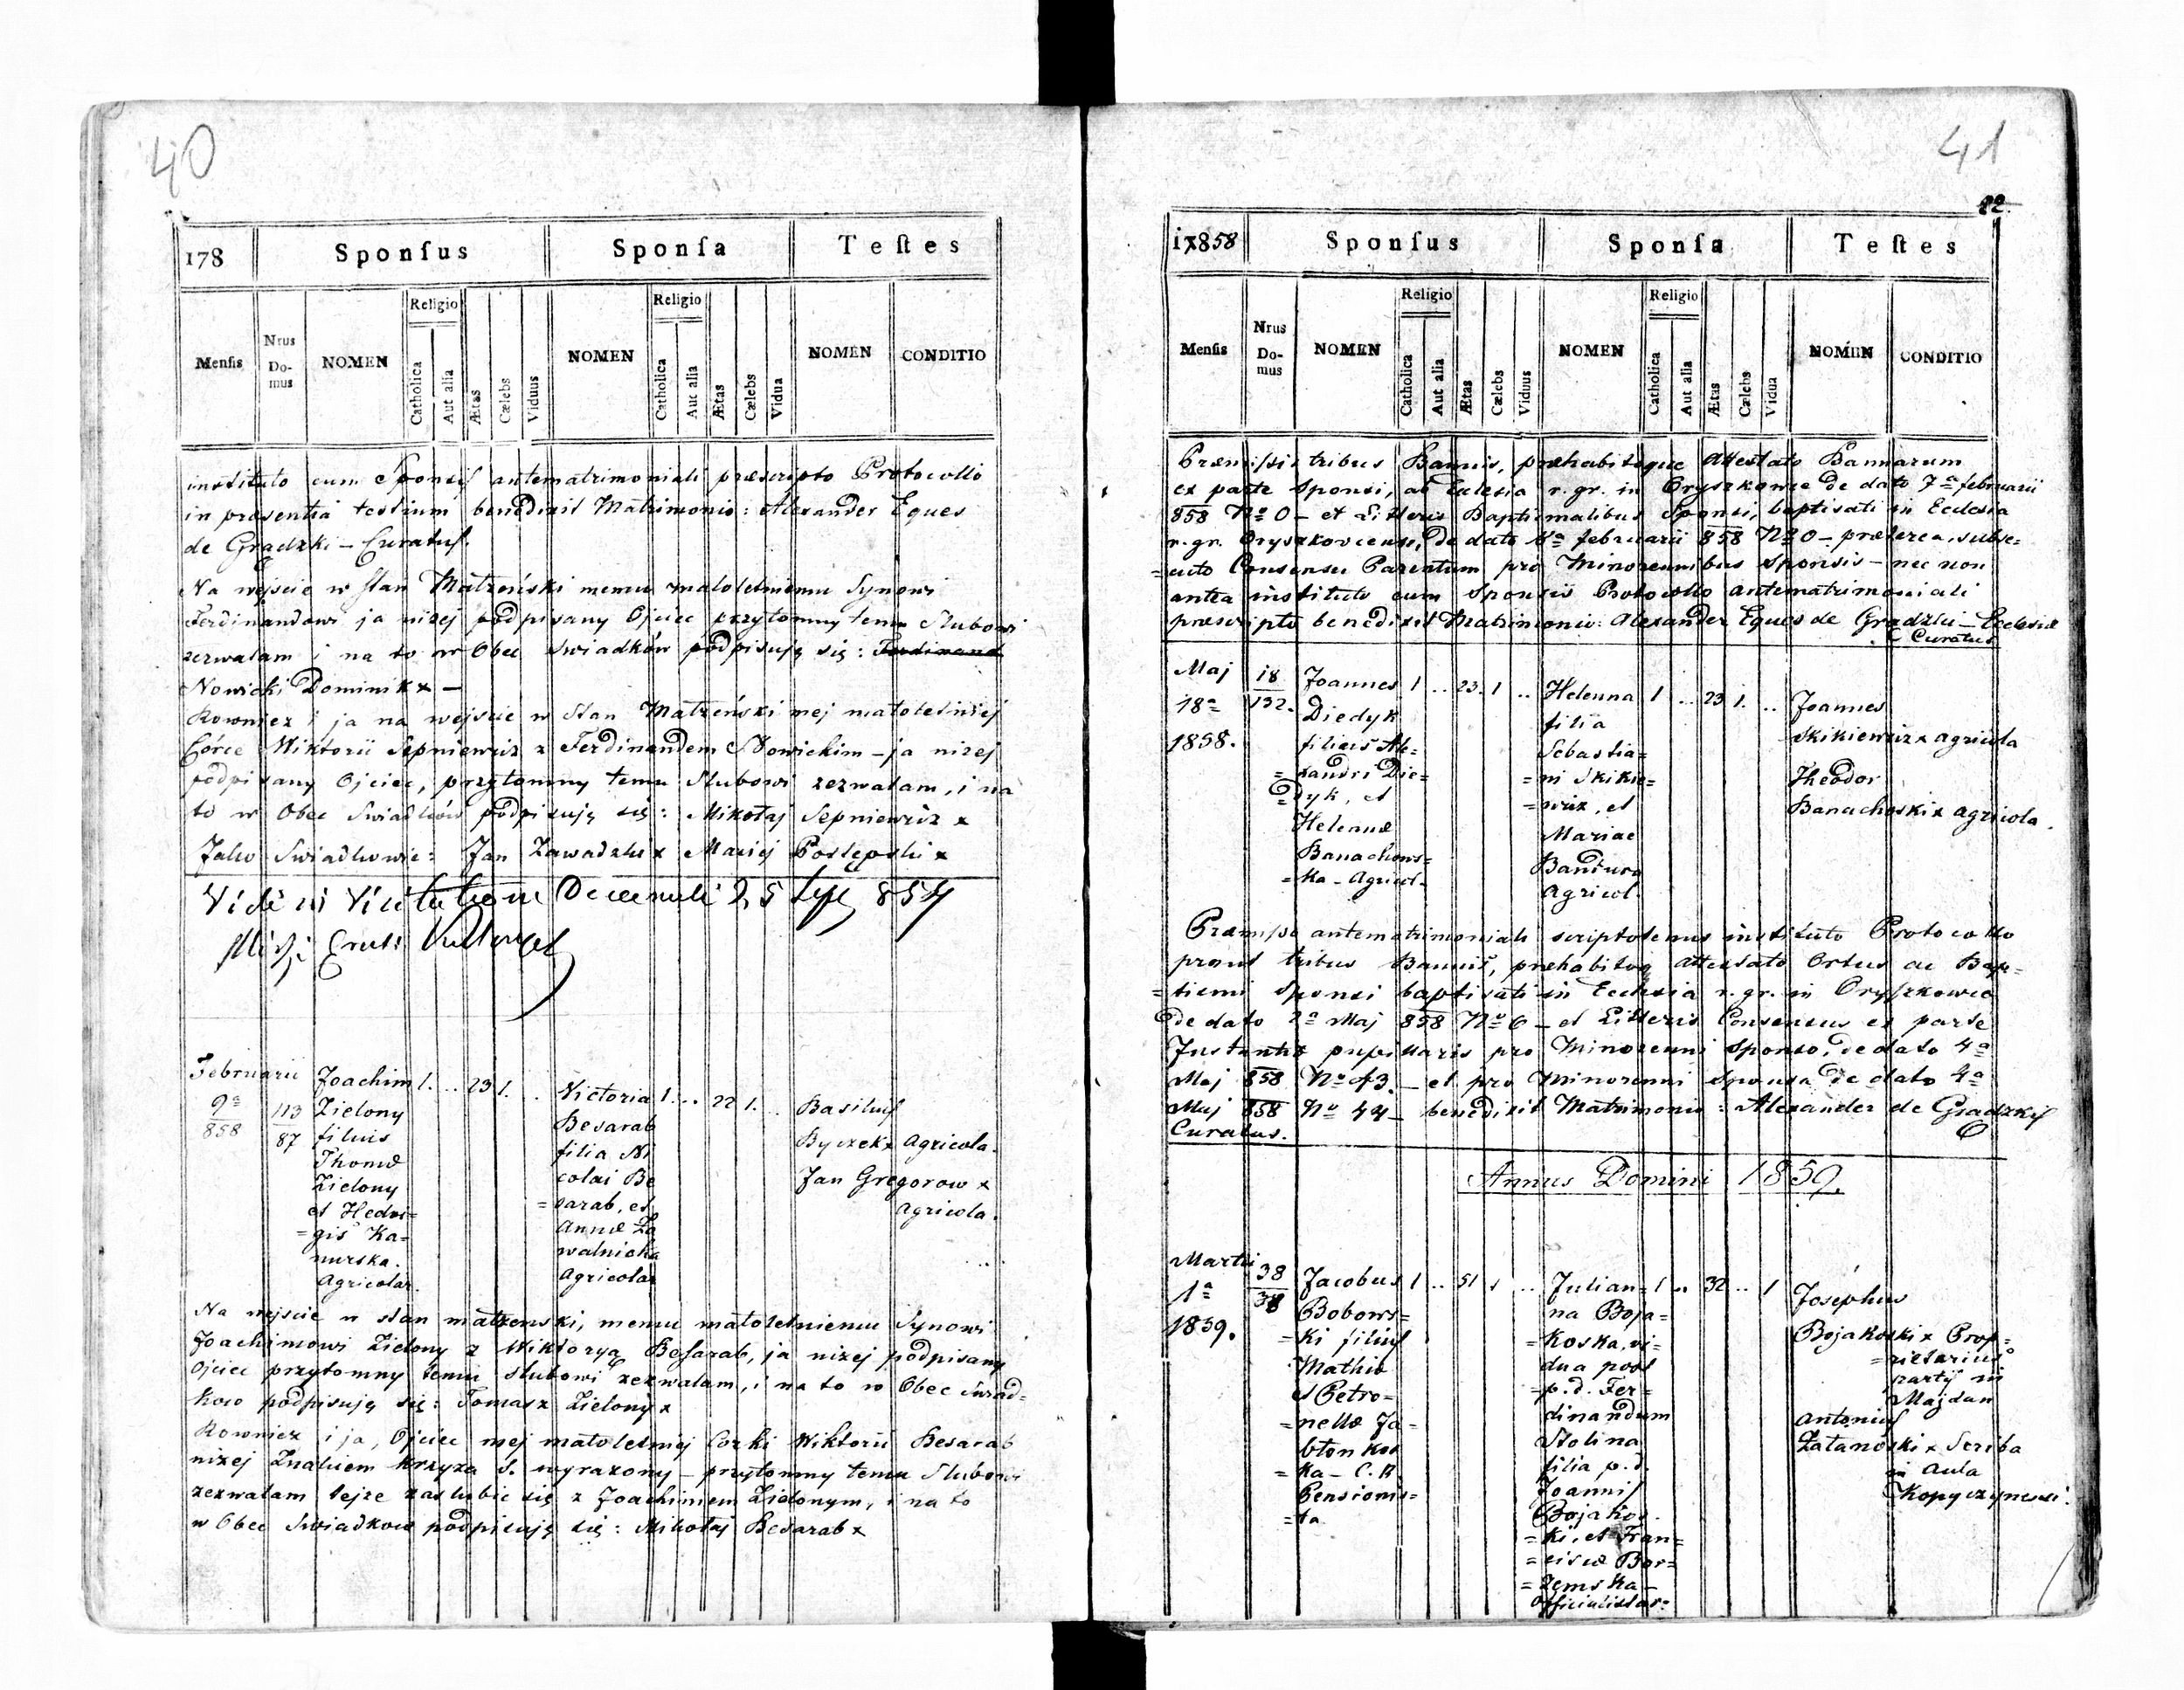 40
178
Sponſus
Sponſa
Teſtes
Menſis
Nrus Do-mus
NOMEN
Religio
Catholica
Aut alia
Ætas
Cælebs
Viduus
NOMEN
Religio
Catholica
Aut alia
Ætas
Cælebs
Vidua
NOMEN
CONDITIO
instituto cum Sponsis antematrimoniali præscripto Protocollo
in præsentia testium benedixit Matrimonio: Alexander Eques
de Grądzki – Curatus.
Na wejscie w stan Małżeński memu małoletniemu Synowi
Ferdinandowi ja niżej podpisany Ojciec przytomny temu Slubowi
zezwalam i na to w Obec swiadków podpisuję się: Ferdinand
Nowicki Dominik x –
Rowniez i ja na wejscie w Stan Małżeński mej małoletniej
Córce Wiktorii Sepniewicz z Ferdinandem Nowickim – ja nizej
podpisany Ojciec, przytomny temu Slubowi zezwalam, i na
to w Obec Swiadków podpisuję się: Mikołaj Sepniewicz x
Jako Swiadkowie: Jan Zawadzki x Maciej Postępski x
Vidi in Visitatione Decennali 25 854
Februarii
9ª
858
113
87
Joachim
Zielony
filius
Thomæ
Zielony
et Hedwi=
=gis Ka=
nurska.
Agricolar.
1. .. 23 1. ..
Victoria
Besarab
filia Ni
colai Be
=sarab, et
Annæ Za
walnicka
Agricolar
1. .. 22 1. ..
Basilius
Byczek x Agricola.
Jan Gregorow x
Agricola.
Na wejscie w stan małżenski, memu małoletniemu Synowi
Joachimowi Zielony z Wiktoryą Besarab, ja niżej podpisany
Ojciec przytomny temu slubowi zezwalam, i na to w Obec świad=
kow podpisuję się: Tomasz Zielony x
Rowniez i ja, Ojciec mej małoletniej Corki Wiktorii Besarab
niżej Znakiem krzyża S. wyrażony – przytomny temu Slubowi
zezwalam tejze zaslubic się z Joachimem Zielonym, i na to
w Obec Swiadkow podpisuję się: Mikołaj Besarab x
41
22.
1x858
Sponſus
Sponſa
Teſtes
Menſis
Nrus Do-mus
NOMEN
Religio
Catholica
Aut alia
Ætas
Cælebs
Viduus
NOMEN
Religio
Catholica
Aut alia
Ætas
Cælebs
Vidua
NOMEN
CONDITIO
Præmissis tribus Bannis, præhabitoque Attestato Bannarum
ex parte Sponsi, ab Ecclesia r. gr. in Oryszkowce de dato 7ª februarii
858 Nº 0 – et Litteris Baptismalibus Sponsi, baptisati in Ecclesia
r. gr. Oryszkoviensi, de dato 8ª februarii 858 Nº 0 – præterea, subse=
=cuto Consensu Parentum pro Minorennibus sponsis – nec non
antea instituto cum Sponsis Protocollo antematrimoniali
præscripto benedixit Matrimonio: Alexander Eques de Grądzki – Ecclesiæ
Curatus
Maj
18ª
1858.
18
132.
Joannes
Diedyk
filius Ale=
=xandri Die=
=dyk, et
Helenæ
Banachows=
=ka – Agricol.
1 .. 23. 1 ..
Helenna
filia
Sebastia=
=ni Skikie=
=wicz, et
Mariae
Bandura
Agricol.
1 .. 23 1. ..
Joannes
Skikiewicz x agricola
Theodor
Banachoski x agricola.
Præmisso antematrimoniali scriptotenus instituto Protocollo
prout tribus Bannis, præhabitoq Attestato Ortus ac Bap=
=tismi Sponsi baptisati in Ecclesia r. gr. in Oryszkowce
de dato 2ª Maj 858 Nº 6 – et Litteris Consensus ex parte
Instantiæ pupillaris pro Minorenni Sponso, de dato 4ª
Maj 858 Nº 43. – et pro Minorenni Sponsa de dato 4ª
Maj 858 Nº 44 – benedixit Matrimonio: Alexander de Grądzki
Curatus.
Annus Domini 1859.
Martii
1ª
1859.
38
38
Jacobus
Bobows=
=ki filius
Mathiæ
et Petro=
=nellæ Ja=
błonkos
=ka – C. R.
Pensionis=
=ta
1 .. 51 1 ..
Julian=
na Boja=
=koska, vi=
dua post
=p. d. Fer=
dinandum
Stolina
filia p. d.
Joannis
Bojakos=
=ki, et Fran=
=ciscæ Bor=
=zemska –
Officialistar=
1 .. 32 .. 1
Josephus
Bojakoski x Prop=
=rietarius
partis in
Majdan
Antonius
Łatanoski x Scriba
in Aula
Kopyczynecsi.